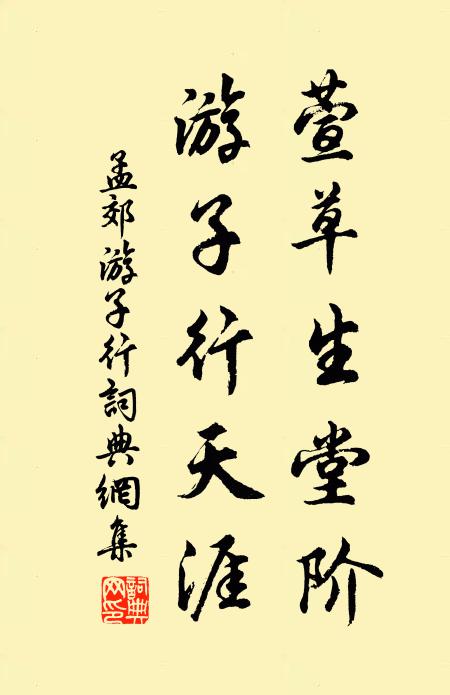 萱草生堂阶
游子行天涯
孟郊游子行詞典網集
詞典網印